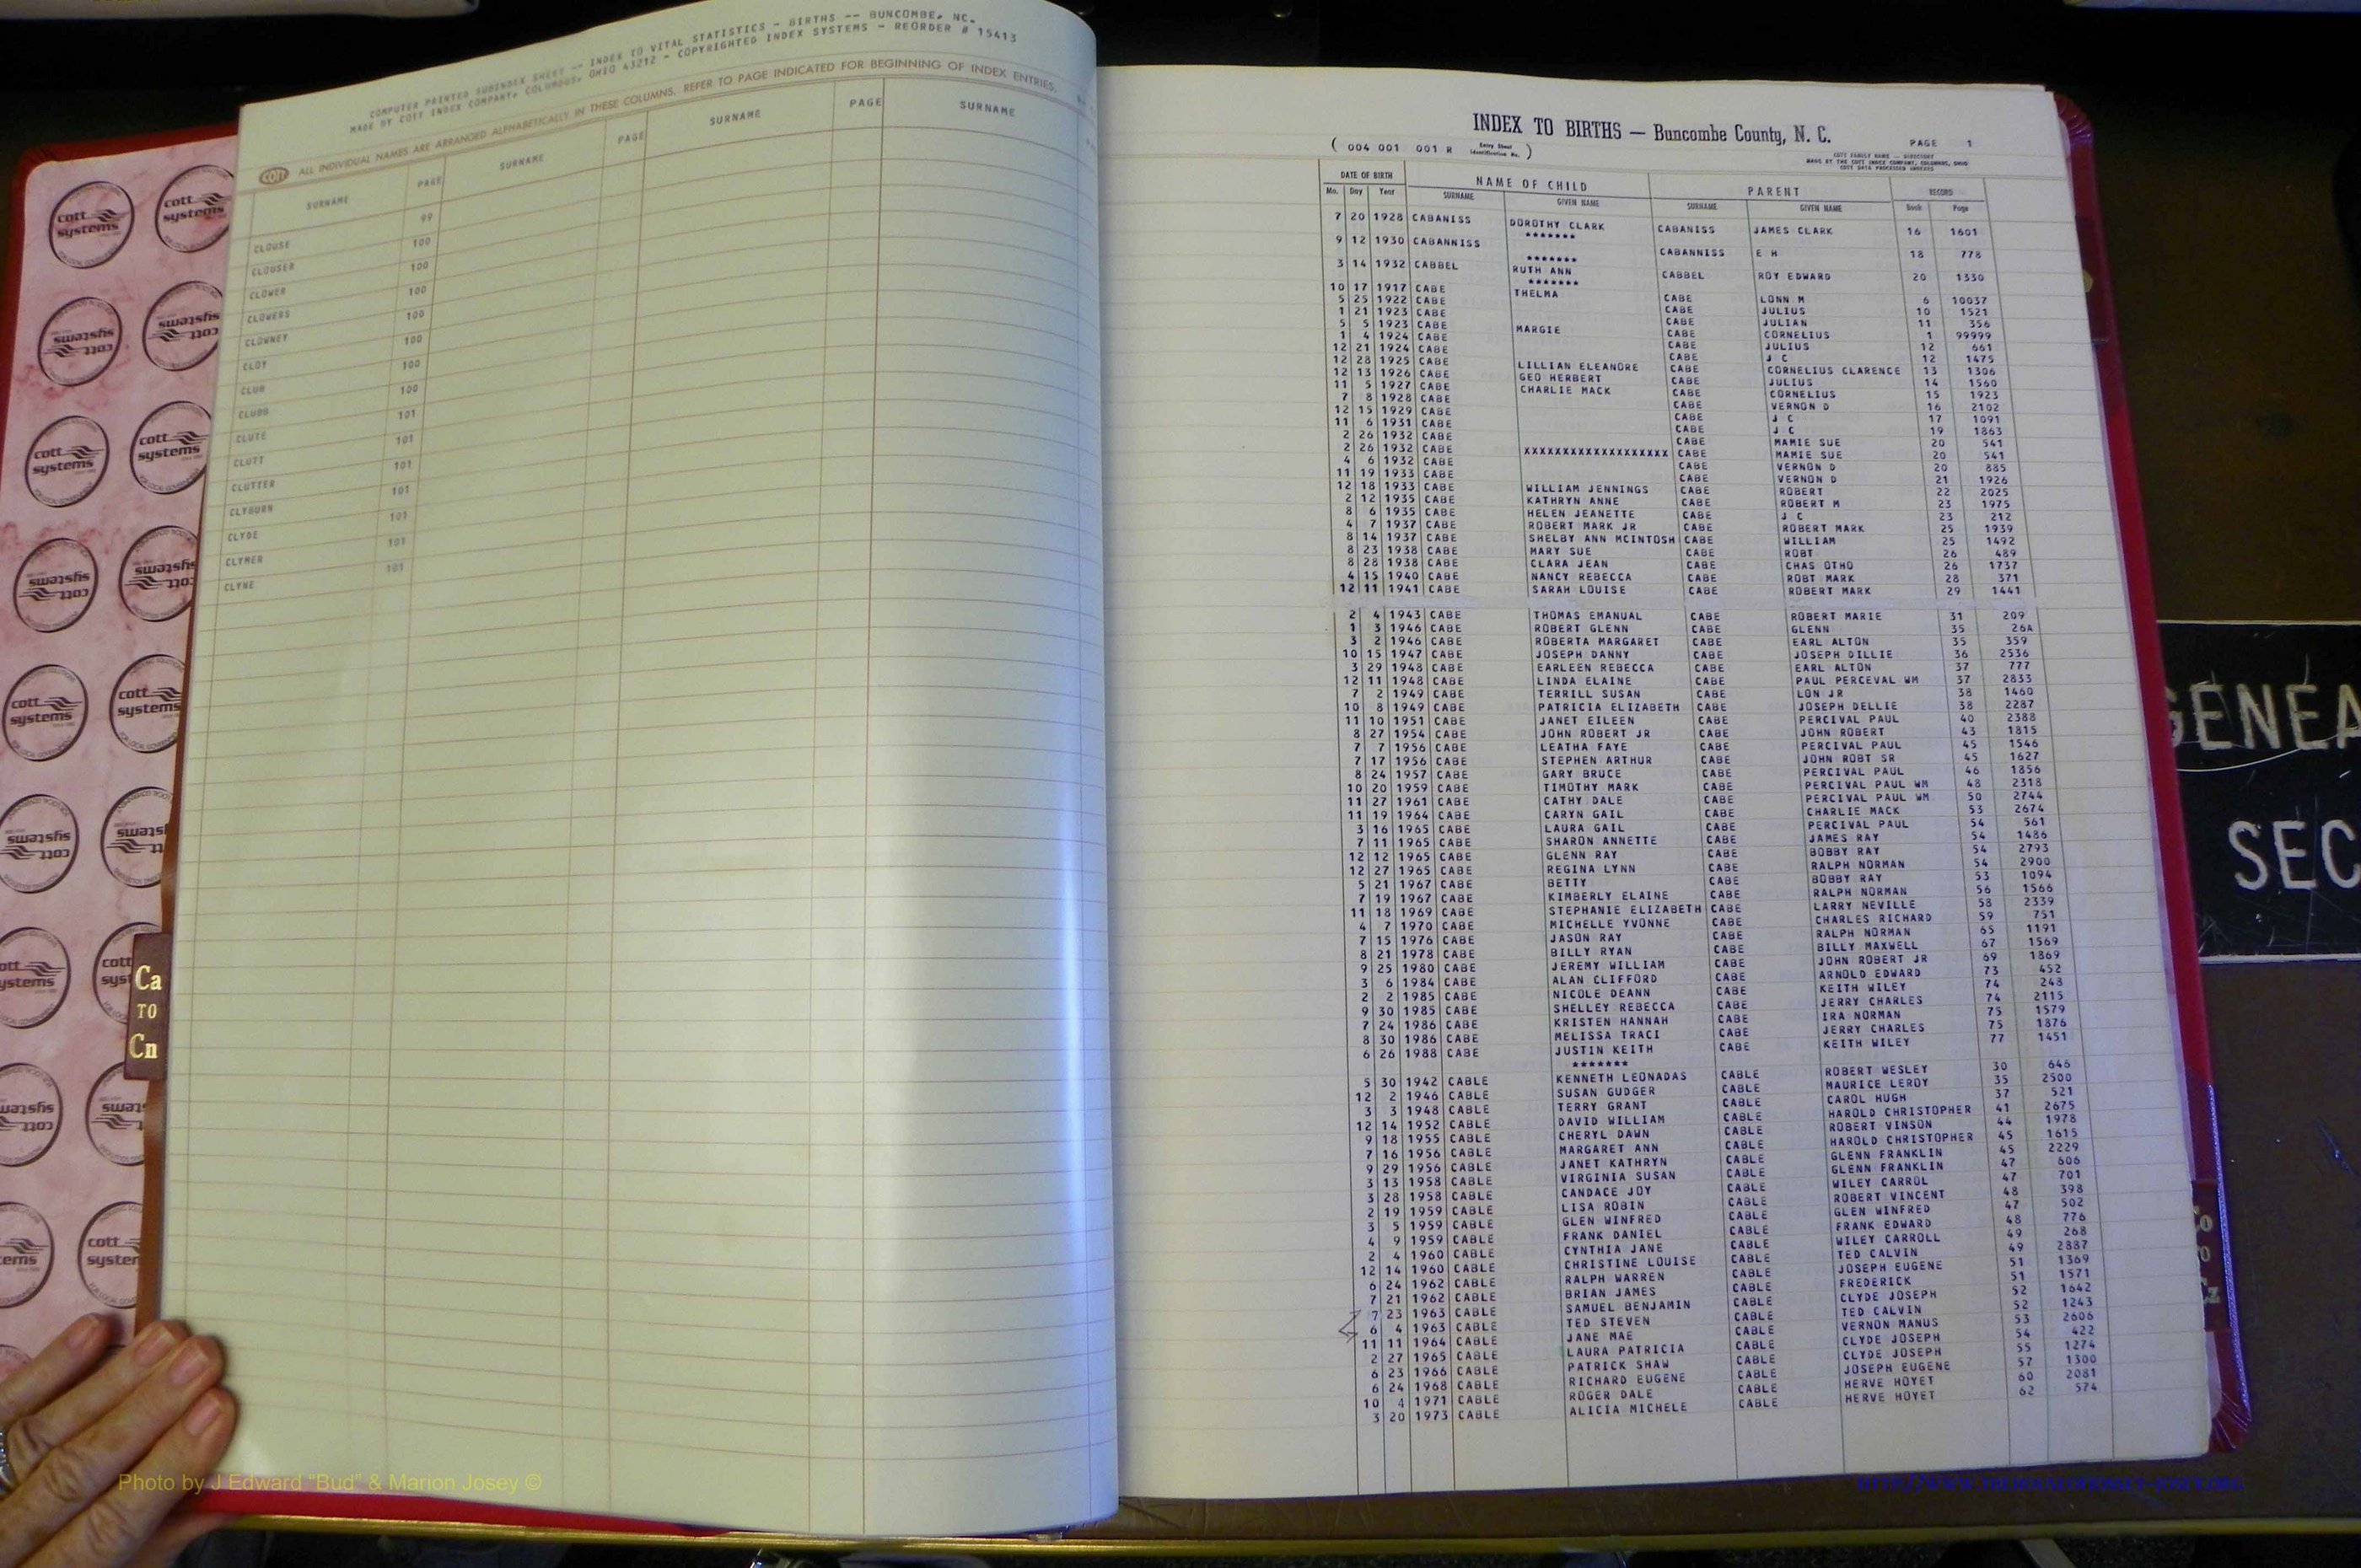 COMPUTER PRINTED SUBINDEX SHEET -- INDEX TO VITAL STATISTICS - BIRTHS -- BUNCOMBE, NC.
MADE BY COTT INDEX COMPANY, COLUMBUS, OHIO 43212 - COPYRIGHTED INDEX SYSTEMS - REORDER # 15413
COTT ALL INDIVIDUAL NAMES ARE ARRANGED ALPHABETICALLY IN THESE COLUMNS. REFER TO PAGE INDICATED FOR BEGINNING OF INDEX ENTRIES.
SURNAME PAGE SURNAME PAGE SURNAME PAGE SURNAME
CLOUSE 99
CLOUSER 100
CLOWER 100
CLOWERS 100
CLOWNEY 100
CLOY 100
CLUB 100
CLUBB 100
CLUTE 101
CLUTT 101
CLUTTER 101
CLYBURN 101
CLYDE 101
CLYMER 101
CLYNE 101
Ca
TO
Cn
cott
systems
INDEX TO BIRTHS — Buncombe County, N. C.
PAGE 1
( 004 001 001 R Entry Sheet Identification No. )
COTT FAMILY NAME — DIRECTORY
MADE BY THE COTT INDEX COMPANY, COLUMBUS, OHIO
COTT DATA PROCESSED INDEXES
DATE OF BIRTH NAME OF CHILD PARENT RECORD
Mo. Day Year SURNAME GIVEN NAME SURNAME GIVEN NAME Book Page
7 20 1928 CABANISS DOROTHY CLARK CABANISS JAMES CLARK 16 1601
*******
9 12 1930 CABANNISS CABANNISS E H 18 778
*******
3 14 1932 CABBEL RUTH ANN CABBEL ROY EDWARD 20 1330
*******
10 17 1917 CABE THELMA CABE LONN M 6 10037
5 25 1922 CABE CABE JULIUS 10 1521
1 21 1923 CABE CABE JULIAN 11 356
5 5 1923 CABE MARGIE CABE CORNELIUS 1 99999
1 4 1924 CABE CABE JULIUS 12 661
12 21 1924 CABE CABE J C 12 1475
12 28 1925 CABE LILLIAN ELEANORE CABE CORNELIUS CLARENCE 13 1306
12 13 1926 CABE GEO HERBERT CABE JULIUS 14 1560
11 5 1927 CABE CHARLIE MACK CABE CORNELIUS 15 1923
7 8 1928 CABE CABE VERNON D 16 2102
12 15 1929 CABE CABE J C 17 1091
11 6 1931 CABE CABE J C 19 1863
2 26 1932 CABE CABE MAMIE SUE 20 541
2 26 1932 CABE XXXXXXXXXXXXXXXXXXX CABE MAMIE SUE 20 541
4 6 1932 CABE CABE VERNON D 20 885
11 19 1933 CABE CABE VERNON D 21 1926
12 18 1933 CABE WILLIAM JENNINGS CABE ROBERT 22 2025
2 12 1935 CABE KATHRYN ANNE CABE ROBERT M 23 1975
8 6 1935 CABE HELEN JEANETTE CABE J C 23 212
4 7 1937 CABE ROBERT MARK JR CABE ROBERT MARK 25 1939
8 14 1937 CABE SHELBY ANN MCINTOSH CABE WILLIAM 25 1492
8 23 1938 CABE MARY SUE CABE ROBT 26 489
8 28 1938 CABE CLARA JEAN CABE CHAS OTHO 26 1737
4 15 1940 CABE NANCY REBECCA CABE ROBT MARK 28 371
12 11 1941 CABE SARAH LOUISE CABE ROBERT MARK 29 1441
2 4 1943 CABE THOMAS EMANUAL CABE ROBERT MARIE 31 209
1 3 1946 CABE ROBERT GLENN CABE GLENN 35 26A
3 2 1946 CABE ROBERTA MARGARET CABE EARL ALTON 35 359
10 15 1947 CABE JOSEPH DANNY CABE JOSEPH DILLIE 36 2536
3 29 1948 CABE EARLEEN REBECCA CABE EARL ALTON 37 777
12 11 1948 CABE LINDA ELAINE CABE PAUL PERCEVAL WM 37 2833
7 2 1949 CABE TERRILL SUSAN CABE LON JR 38 1460
10 8 1949 CABE PATRICIA ELIZABETH CABE JOSEPH DELLIE 38 2287
11 10 1951 CABE JANET EILEEN CABE PERCIVAL PAUL 40 2388
8 27 1954 CABE JOHN ROBERT JR CABE JOHN ROBERT 43 1815
7 7 1956 CABE LEATHA FAYE CABE PERCIVAL PAUL 45 1546
7 17 1956 CABE STEPHEN ARTHUR CABE JOHN ROBT SR 45 1627
8 24 1957 CABE GARY BRUCE CABE PERCIVAL PAUL 46 1856
10 20 1959 CABE TIMOTHY MARK CABE PERCIVAL PAUL WM 48 2318
11 27 1961 CABE CATHY DALE CABE PERCIVAL PAUL WM 50 2744
11 19 1964 CABE CARYN GAIL CABE CHARLIE MACK 53 2674
3 16 1965 CABE LAURA GAIL CABE PERCIVAL PAUL 54 561
7 11 1965 CABE SHARON ANNETTE CABE JAMES RAY 54 1486
12 12 1965 CABE GLENN RAY CABE BOBBY RAY 54 2793
12 27 1965 CABE REGINA LYNN CABE RALPH NORMAN 54 2900
5 21 1967 CABE BETTY CABE BOBBY RAY 53 1094
7 19 1967 CABE KIMBERLY ELAINE CABE RALPH NORMAN 56 1566
11 18 1969 CABE STEPHANIE ELIZABETH CABE LARRY NEVILLE 58 2339
4 7 1970 CABE MICHELLE YVONNE CABE CHARLES RICHARD 59 751
7 15 1976 CABE JASON RAY CABE RALPH NORMAN 65 1191
8 21 1978 CABE BILLY RYAN CABE BILLY MAXWELL 67 1569
9 25 1980 CABE JEREMY WILLIAM CABE JOHN ROBERT JR 69 1869
3 6 1984 CABE ALAN CLIFFORD CABE ARNOLD EDWARD 73 452
2 2 1985 CABE NICOLE DEANN CABE KEITH WILEY 74 248
9 30 1985 CABE SHELLEY REBECCA CABE JERRY CHARLES 74 2115
7 24 1986 CABE KRISTEN HANNAH CABE IRA NORMAN 75 1579
8 30 1986 CABE MELISSA TRACI CABE JERRY CHARLES 75 1876
6 26 1988 CABE JUSTIN KEITH CABE KEITH WILEY 77 1451
*******
5 30 1942 CABLE KENNETH LEONADAS CABLE ROBERT WESLEY 30 646
12 2 1946 CABLE SUSAN GUDGER CABLE MAURICE LEROY 35 2500
3 3 1948 CABLE TERRY GRANT CABLE CAROL HUGH 37 521
12 14 1952 CABLE DAVID WILLIAM CABLE HAROLD CHRISTOPHER 41 2675
9 18 1955 CABLE CHERYL DAWN CABLE ROBERT VINSON 44 1978
7 16 1956 CABLE MARGARET ANN CABLE HAROLD CHRISTOPHER 45 1615
9 29 1956 CABLE JANET KATHRYN CABLE GLENN FRANKLIN 45 2229
3 13 1958 CABLE VIRGINIA SUSAN CABLE GLENN FRANKLIN 47 606
3 28 1958 CABLE CANDACE JOY CABLE WILEY CARROL 47 701
2 19 1959 CABLE LISA ROBIN CABLE ROBERT VINCENT 48 398
3 5 1959 CABLE GLEN WINFRED CABLE GLEN WINFRED 47 502
4 9 1959 CABLE FRANK DANIEL CABLE FRANK EDWARD 48 776
2 4 1960 CABLE CYNTHIA JANE CABLE WILEY CARROLL 49 268
12 14 1960 CABLE CHRISTINE LOUISE CABLE TED CALVIN 49 2887
6 24 1962 CABLE RALPH WARREN CABLE JOSEPH EUGENE 51 1369
7 21 1962 CABLE BRIAN JAMES CABLE FREDERICK 51 1571
7 23 1963 CABLE SAMUEL BENJAMIN CABLE CLYDE JOSEPH 52 1642
6 4 1963 CABLE TED STEVEN CABLE TED CALVIN 52 1243
11 11 1964 CABLE JANE MAE CABLE VERNON MANUS 53 2606
2 27 1965 CABLE LAURA PATRICIA CABLE CLYDE JOSEPH 54 422
6 23 1966 CABLE PATRICK SHAW CABLE CLYDE JOSEPH 55 1274
6 24 1968 CABLE RICHARD EUGENE CABLE JOSEPH EUGENE 57 1300
10 4 1971 CABLE ROGER DALE CABLE HERVE HOYET 60 2081
3 20 1973 CABLE ALICIA MICHELE CABLE HERVE HOYET 62 574
GENEA
SEC
Photo by J Edward "Bud" & Marion Josey ©
HTTP://WWW.THEHOUSEOFJOSSEY-JOSEY.ORG